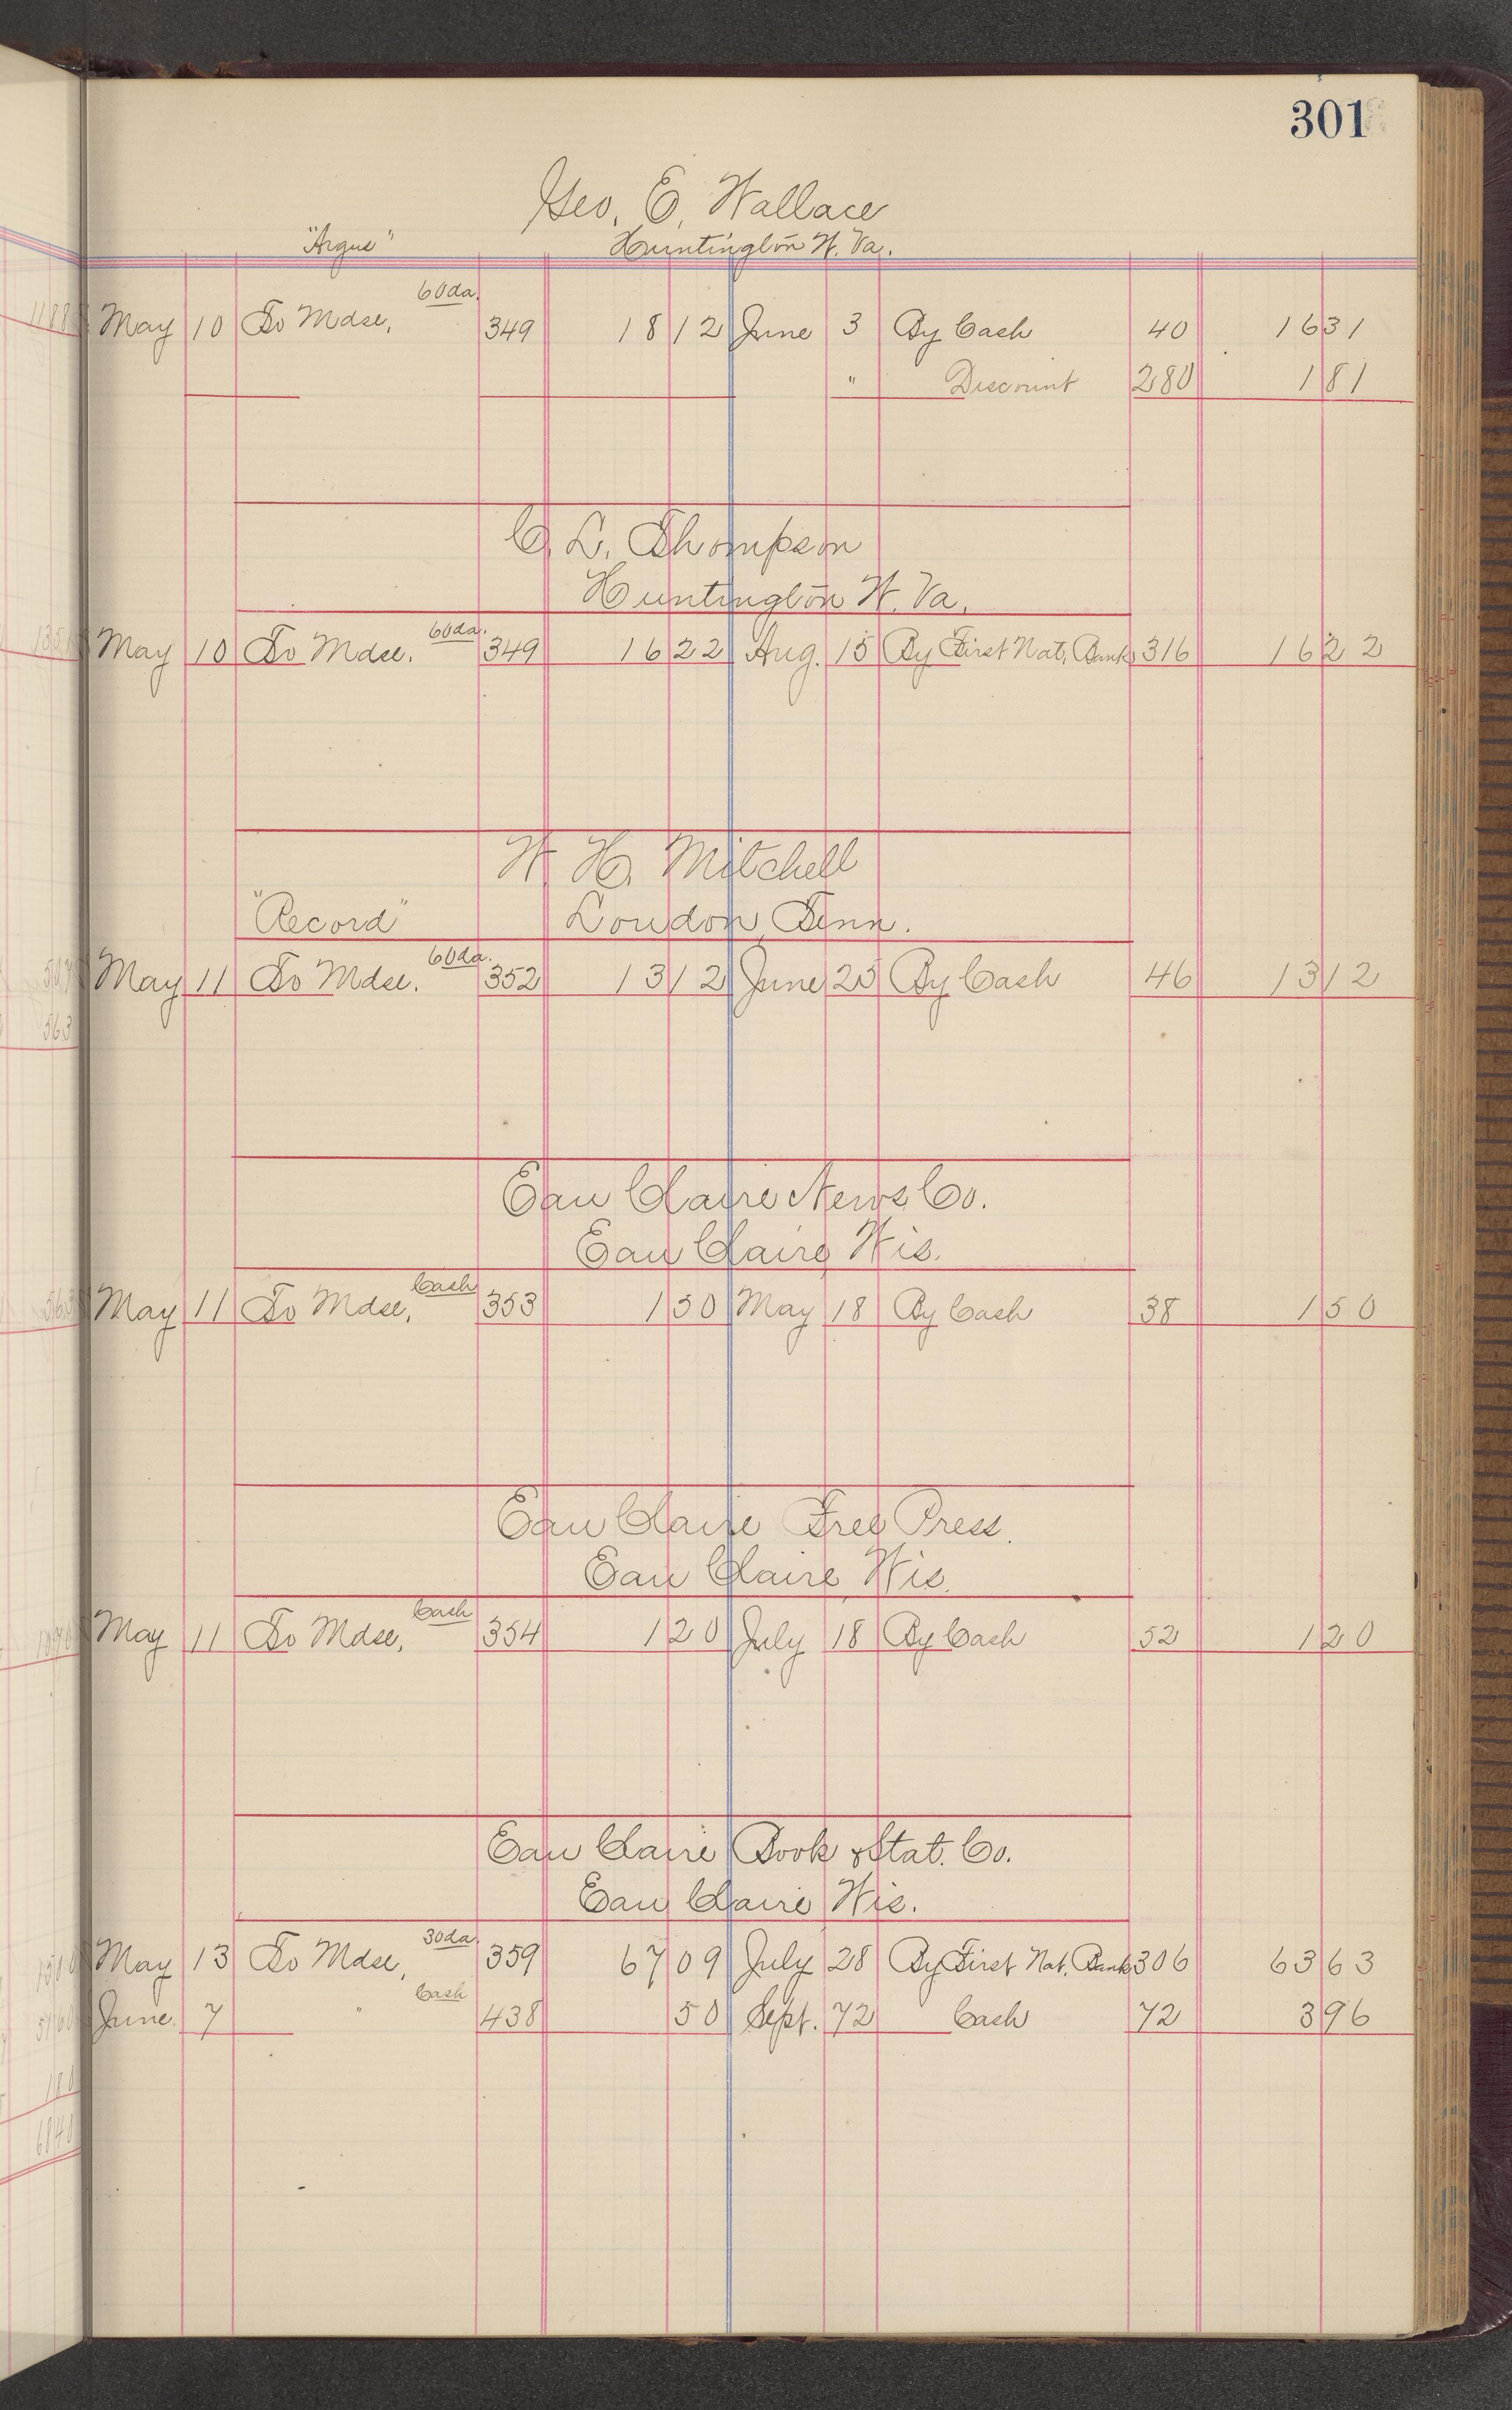 301
Geo. E. Wallace
"Argus" Huntington W. Va.
60da.
May 10 To Mdse, 349 18 12 June 3 By Cash 40 16 31
" Discount 280 1 81
C. L. Thompson
Huntington W. Va.
60da.
May 10 To Mdse. 349 16 22 Aug. 15 By First Nat. Bank 316 16 22
W. H. Mitchell
"Record" Loudon, Tenn.
60da.
May 11 To Mdse. 352 13 12 June 25 By Cash 46 13 12
Eau Claire News Co.
Eau Claire, Wis.
Cash
May 11 To Mdse, 353 1 50 May 18 By Cash 38 1 50
Eau Claire Free Press.
Eau Claire, Wis.
Cash
May 11 To Mdse, 354 1 20 July 18 By Cash 52 1 20
Eau Claire Book & Stat. Co.
Eau Claire Wis.
30da.
May 13 To Mdse, 359 67 09 July 28 By First Nat. Bank 306 63 63
Cash
June 7 " 438 50 Sept. 72 Cash 72 3 96